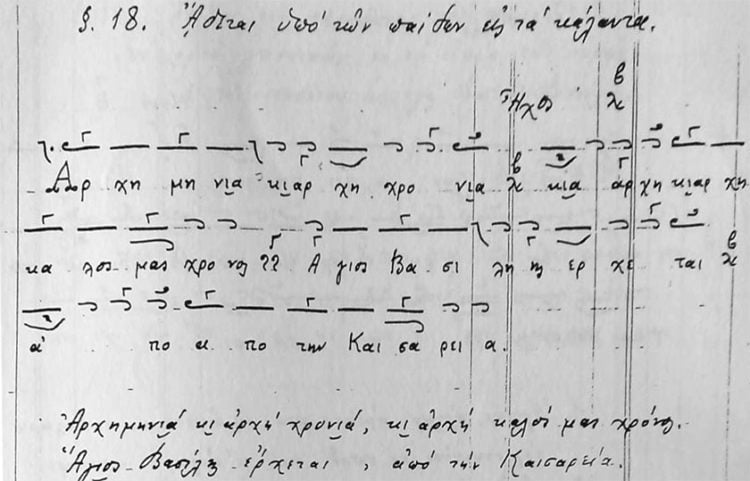 §. 18. Ἄδεται ὑπό τῶν παίδων εἰς τά κάλαντα.
Ἦχος β λ
Αρ χη μη νια κιαρ χη χρο νια λ β κια αρ χη κιαρ χη
κα λος μας χρο νος ?? Α γιος Βα σι λη ης ερ χε ται λ β
α πο α πο την Και σα ρει α.
Ἀρχημηνιά κι ἀρχή χρονιά, κι ἀρχή καλός μας χρόνος.
Ἅγιος Βασίλης ἔρχεται, ἀπό τήν Καισαρεία.